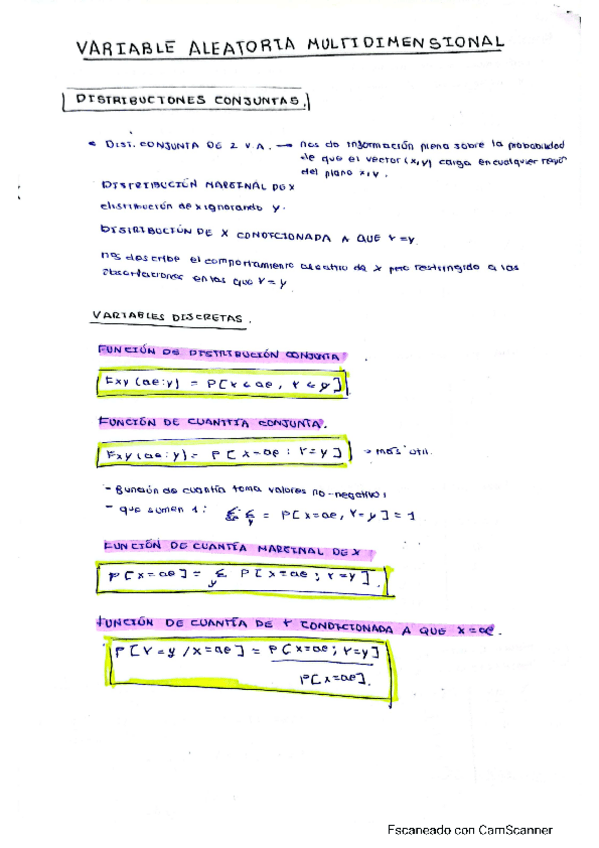 VARIABLE ALEATORIA MULTIDIMENSIONAL
DISTRIBUCIONES CONJUNTAS.
DIST. CONJUNTA DE 2 V.A. → nos da información plena sobre la probabilidad
de que el vector (x,y) caiga en cualquier
del plano x,y.
DISTRIBUCIÓN MARGINAL DE X
distribución de x ignorando y.
DISTRIBUCIÓN DE X CONDICIONADA A QUE Y=y
nos describe el comportamiento de x pero restringido a las
observaciones en las que Y=y
VARIABLES DISCRETAS.
FUNCIÓN DE DISTRIBUCIÓN CONJUNTA
Fxy (x;y) = P[X≤x, Y≤y]
FUNCIÓN DE CUANTÍA CONJUNTA.
Fxy(x;y) = P[X=x ; Y=y] → más útil.
- función de cuantía toma valores no-negativos
- que sumen 1: Σ Σ = P[X=x, Y=y] = 1
y
FUNCIÓN DE CUANTÍA MARGINAL DE X
P[X=x] = Σ P[X=x ; Y=y].
y
FUNCIÓN DE CUANTÍA DE Y CONDICIONADA A QUE X=x.
P[Y=y /X=x] = P[X=x; Y=y]
P[X=x].
Escaneado con CamScanner